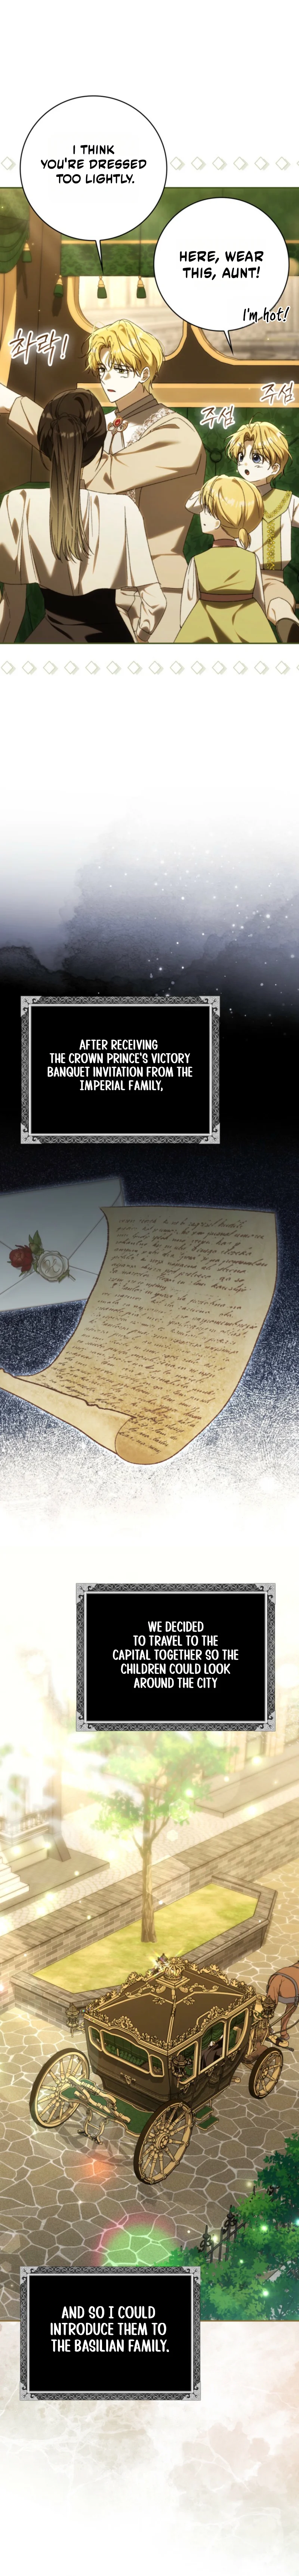 I THINK
YOU'RE DRESSED
TOO LIGHTLY.
HERE, WEAR
THIS, AUNT!
I'm hot!
화락!
주섬
주섬
AFTER RECEIVING
THE CROWN PRINCE'S VICTORY
BANQUET INVITATION FROM THE
IMPERIAL FAMILY,
WE DECIDED
TO TRAVEL TO THE
CAPITAL TOGETHER SO THE
CHILDREN COULD LOOK
AROUND THE CITY
AND SO I COULD
INTRODUCE THEM TO
THE BASILIAN FAMILY.